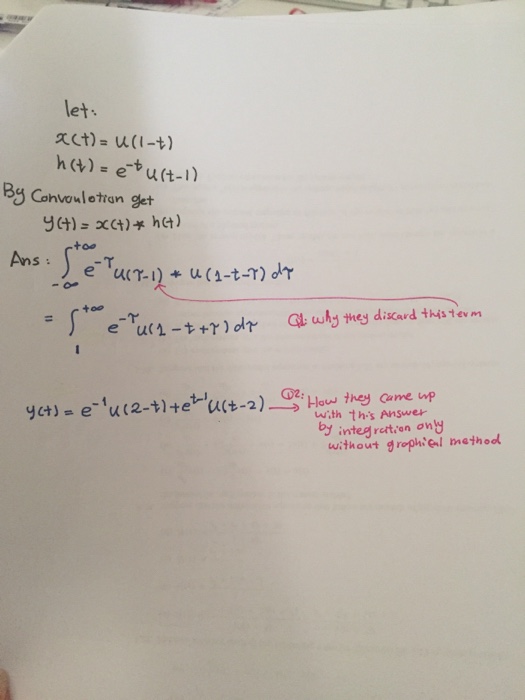 let:
x(t) = u(1-t)
h(t) = e^-t u(t-1)
By Convoulotion get
y(t) = x(t) * h(t)
Ans : ∫_-∞^+∞ e^-τ u(τ-1) * u(1-t-τ) dτ
= ∫_1^+∞ e^-τ u(1-t+τ) dτ
Q1: why they discard this term
y(t) = e^-1 u(2-t) + e^t-1 u(t-2) →
Q2: How they came up
with this Answer
by integration only
without graphical method